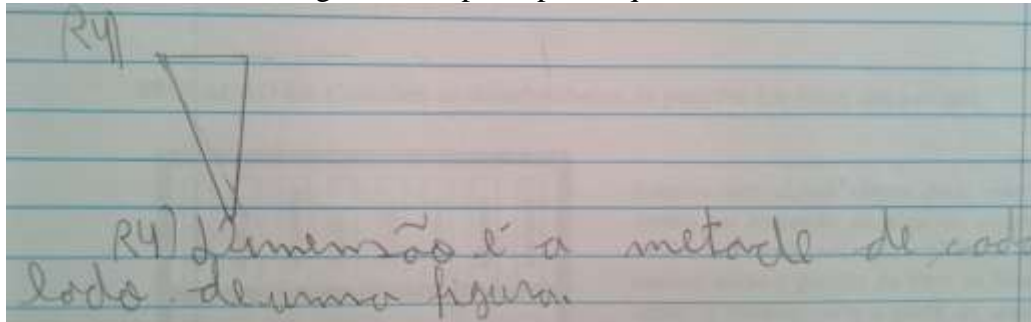 R4)
R4) dimensão é a metade de cad
lado de uma figura.